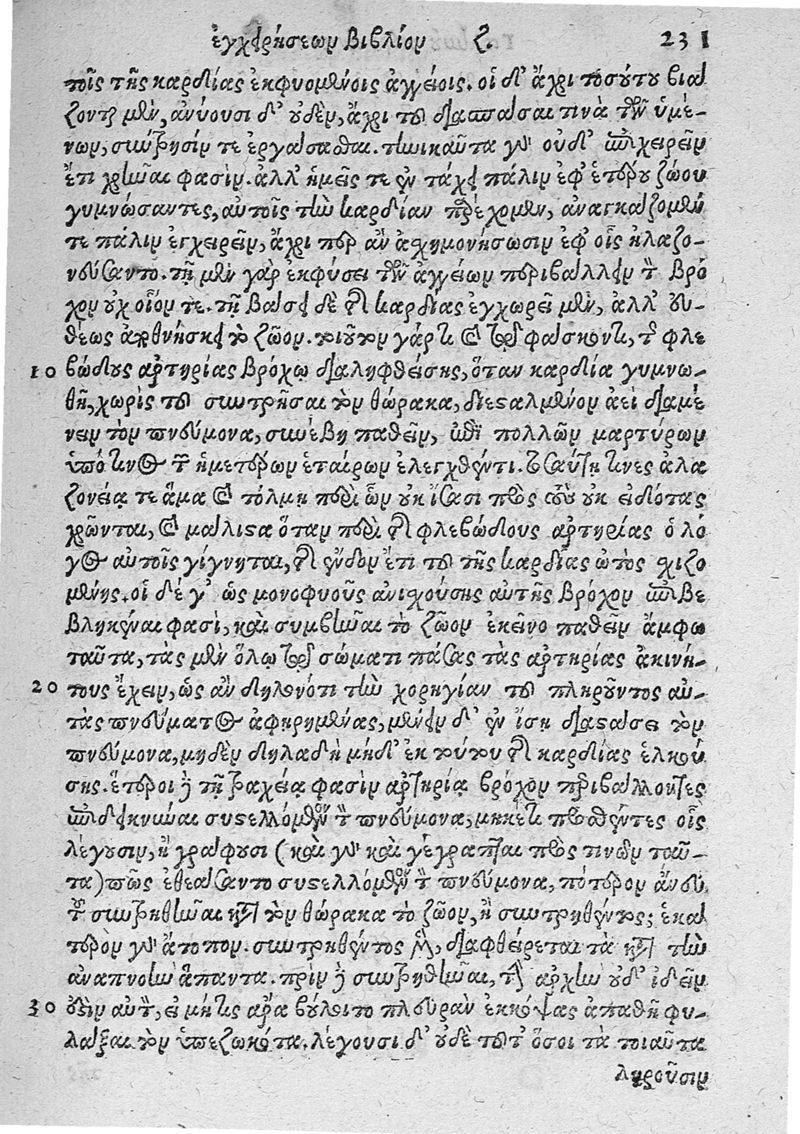 ἐγχειρήσεων βιβλίον ζ. 231
τοῖς τῆς καρδίας ἐκφυομένοις ἀγγείοις. οἱ δ' ἄχρι τοσούτου βιά
ζονται μὲν, ἀνύουσι δ' οὐδὲν, ἄχρι τοῦ διασπάσαι τινὰ τῶν ὑμέ-
νων, σύντρησίν τε ἐργάσασθαι. τηνικαῦτα γὰρ οὐδ' ἐπιχειρεῖν
ἔτι χρῆναι φασίν. ἀλλ' ἡμεῖς τε ἐν τάχει πάλιν ἐφ' ἑτέρου ζώου
γυμνώσαντες, αὐτοῖς τὴν καρδίαν παρέχομεν, ἀναγκάζομεν
τε πάλιν ἐγχειρεῖν, ἄχρι περ ἂν ἀσχημονήσωσιν ἐφ' οἷς ἠλαζο-
νεύσαντο. τῇ μὲν γὰρ ἐκφύσει τῶν ἀγγείων περιβάλλειν τὸν βρό
χον οὐχ οἷόν τε. τῇ βάσει δὲ τῆς καρδίας ἐγχωρεῖ μὲν, ἀλλ' εὐ-
θέως ἀποθνήσκει τὸ ζῶον. τοῦτον γάρ τι καὶ τῷ φάσκοντι, τῆς φλε
10 βώδους ἀρτηρίας βρόχῳ διαληφθείσης, ὅταν καρδία γυμνω-
θῇ, χωρὶς τοῦ συντρῆσαι τὸν θώρακα, διεσταλμένον ἀεὶ διαμέ
νειν τὸν πνεύμονα, συνέβη παθεῖν, ἐπὶ πολλῶν μαρτύρων
ὑπό τινος τῶν ἡμετέρων ἑταίρων ἐλεγχθέντι. τοιαύτῃ τινες ἀλα
ζονείᾳ τε ἅμα καὶ τόλμῃ περὶ ὧν οὐκ ἴσασι πρὸς τοὺς οὐκ εἰδότας
χρῶνται, καὶ μάλιστα ὅταν περὶ τῆς φλεβώδους ἀρτηρίας ὁ λό
γος αὐτοῖς γίγνηται, τῆς ἔνδον ἔτι τοῦ τῆς καρδίας ὠτὸς σχιζο
μένης. οἱ δέ γ' ὡς μονοφυοῦς ἀνισχούσης αὐτῆς βρόχον ἐπιβε
βληκέναι φασὶ, καὶ συμβῆναι τὸ ζῶον ἐκεῖνο παθεῖν ἄμφω
ταῦτα, τὰς μὲν ὅλῳ τῷ σώματι πάσας τὰς ἀρτηρίας ἀκινή-
20 τους ἔχειν, ὡς ἂν δηλονότι τὴν χορηγίαν τοῦ πληροῦντος αὐ-
τὰς πνεύματος ἀφῃρημένας, μένειν δ' ἐν ἴσῃ διαστάσει τὸν
πνεύμονα, μηδὲν δηλαδὴ μηδ' ἐκ τούτου τῆς καρδίας ἑλκού
σης. ἕτεροι δὲ τῇ τραχείᾳ φασὶν ἀρτηρίᾳ βρόχον περιβάλλοντες
ἐπιδεικνύναι συστελλόμενον τὸν πνεύμονα, μηκέτι προσθέντες οἷς
λέγουσιν, ἢ γράφουσι (καὶ γὰρ καὶ γέγραπται πρός τινων ταῦ-
τα) πῶς ἐθεάσαντο συστελλόμενον τὸν πνεύμονα, πότερον ἄνευ
τοῦ συντρηθῆναι κατὰ τὸν θώρακα τὸ ζῶον, ἢ συντρηθέντος; ἑκά
τερον γὰρ ἄτοπον. συντρηθέντος μὲν, διαφθείρεται τὰ κατὰ τὴν
ἀναπνοὴν ἅπαντα. πρὶν δὲ συντρηθῆναι, τὴν ἀρχὴν οὐδ' ἰδεῖν
30 οἷόν αὐτὸν, εἰ μήτις ἄρα βούλοιτο πλευρὰν ἐκκόψας ἀπαθῆ φυ-
λάξαι τὸν ὑπεζωκότα. λέγουσι δ' οὐδὲ τοῦτ' ὅσοι τὰ τοιαῦτα
ληροῦσιν